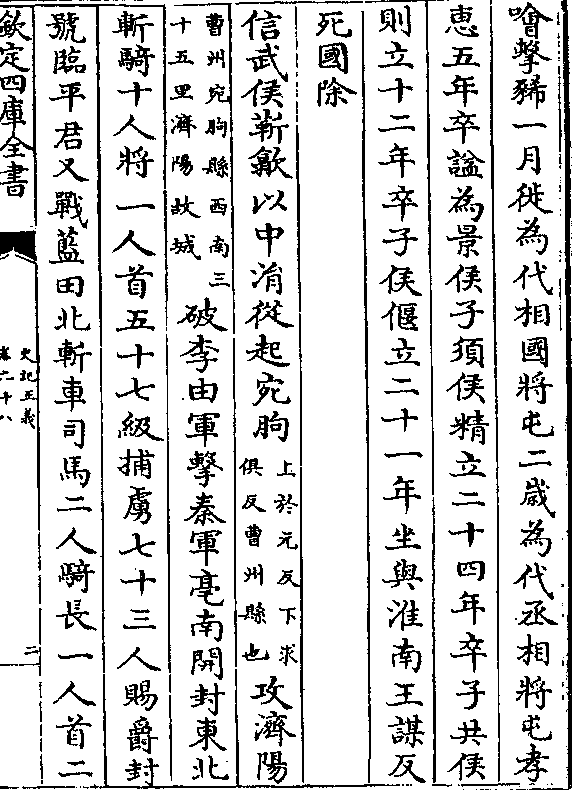 噲擊豨一月徙為代相國將屯二歲為代丞相將屯孝
恵五年卒諡為景侯子須侯精立二十四年卒子共侯
則立十二年卒子侯偃立二十一年坐與淮南王謀反
死國除
信武侯靳歙以中涓從起宛朐上於元反下求俱反曹州縣也攻濟陽
曹州宛朐縣西南三十五里濟陽故城破李由軍擊秦軍亳南開封東北
斬騎十人將一人首五十七級捕虜七十三人賜爵封
號臨平君又戰藍田北斬車司馬二人騎長一人首二
欽定四庫全書
史記正義
卷六十八
二